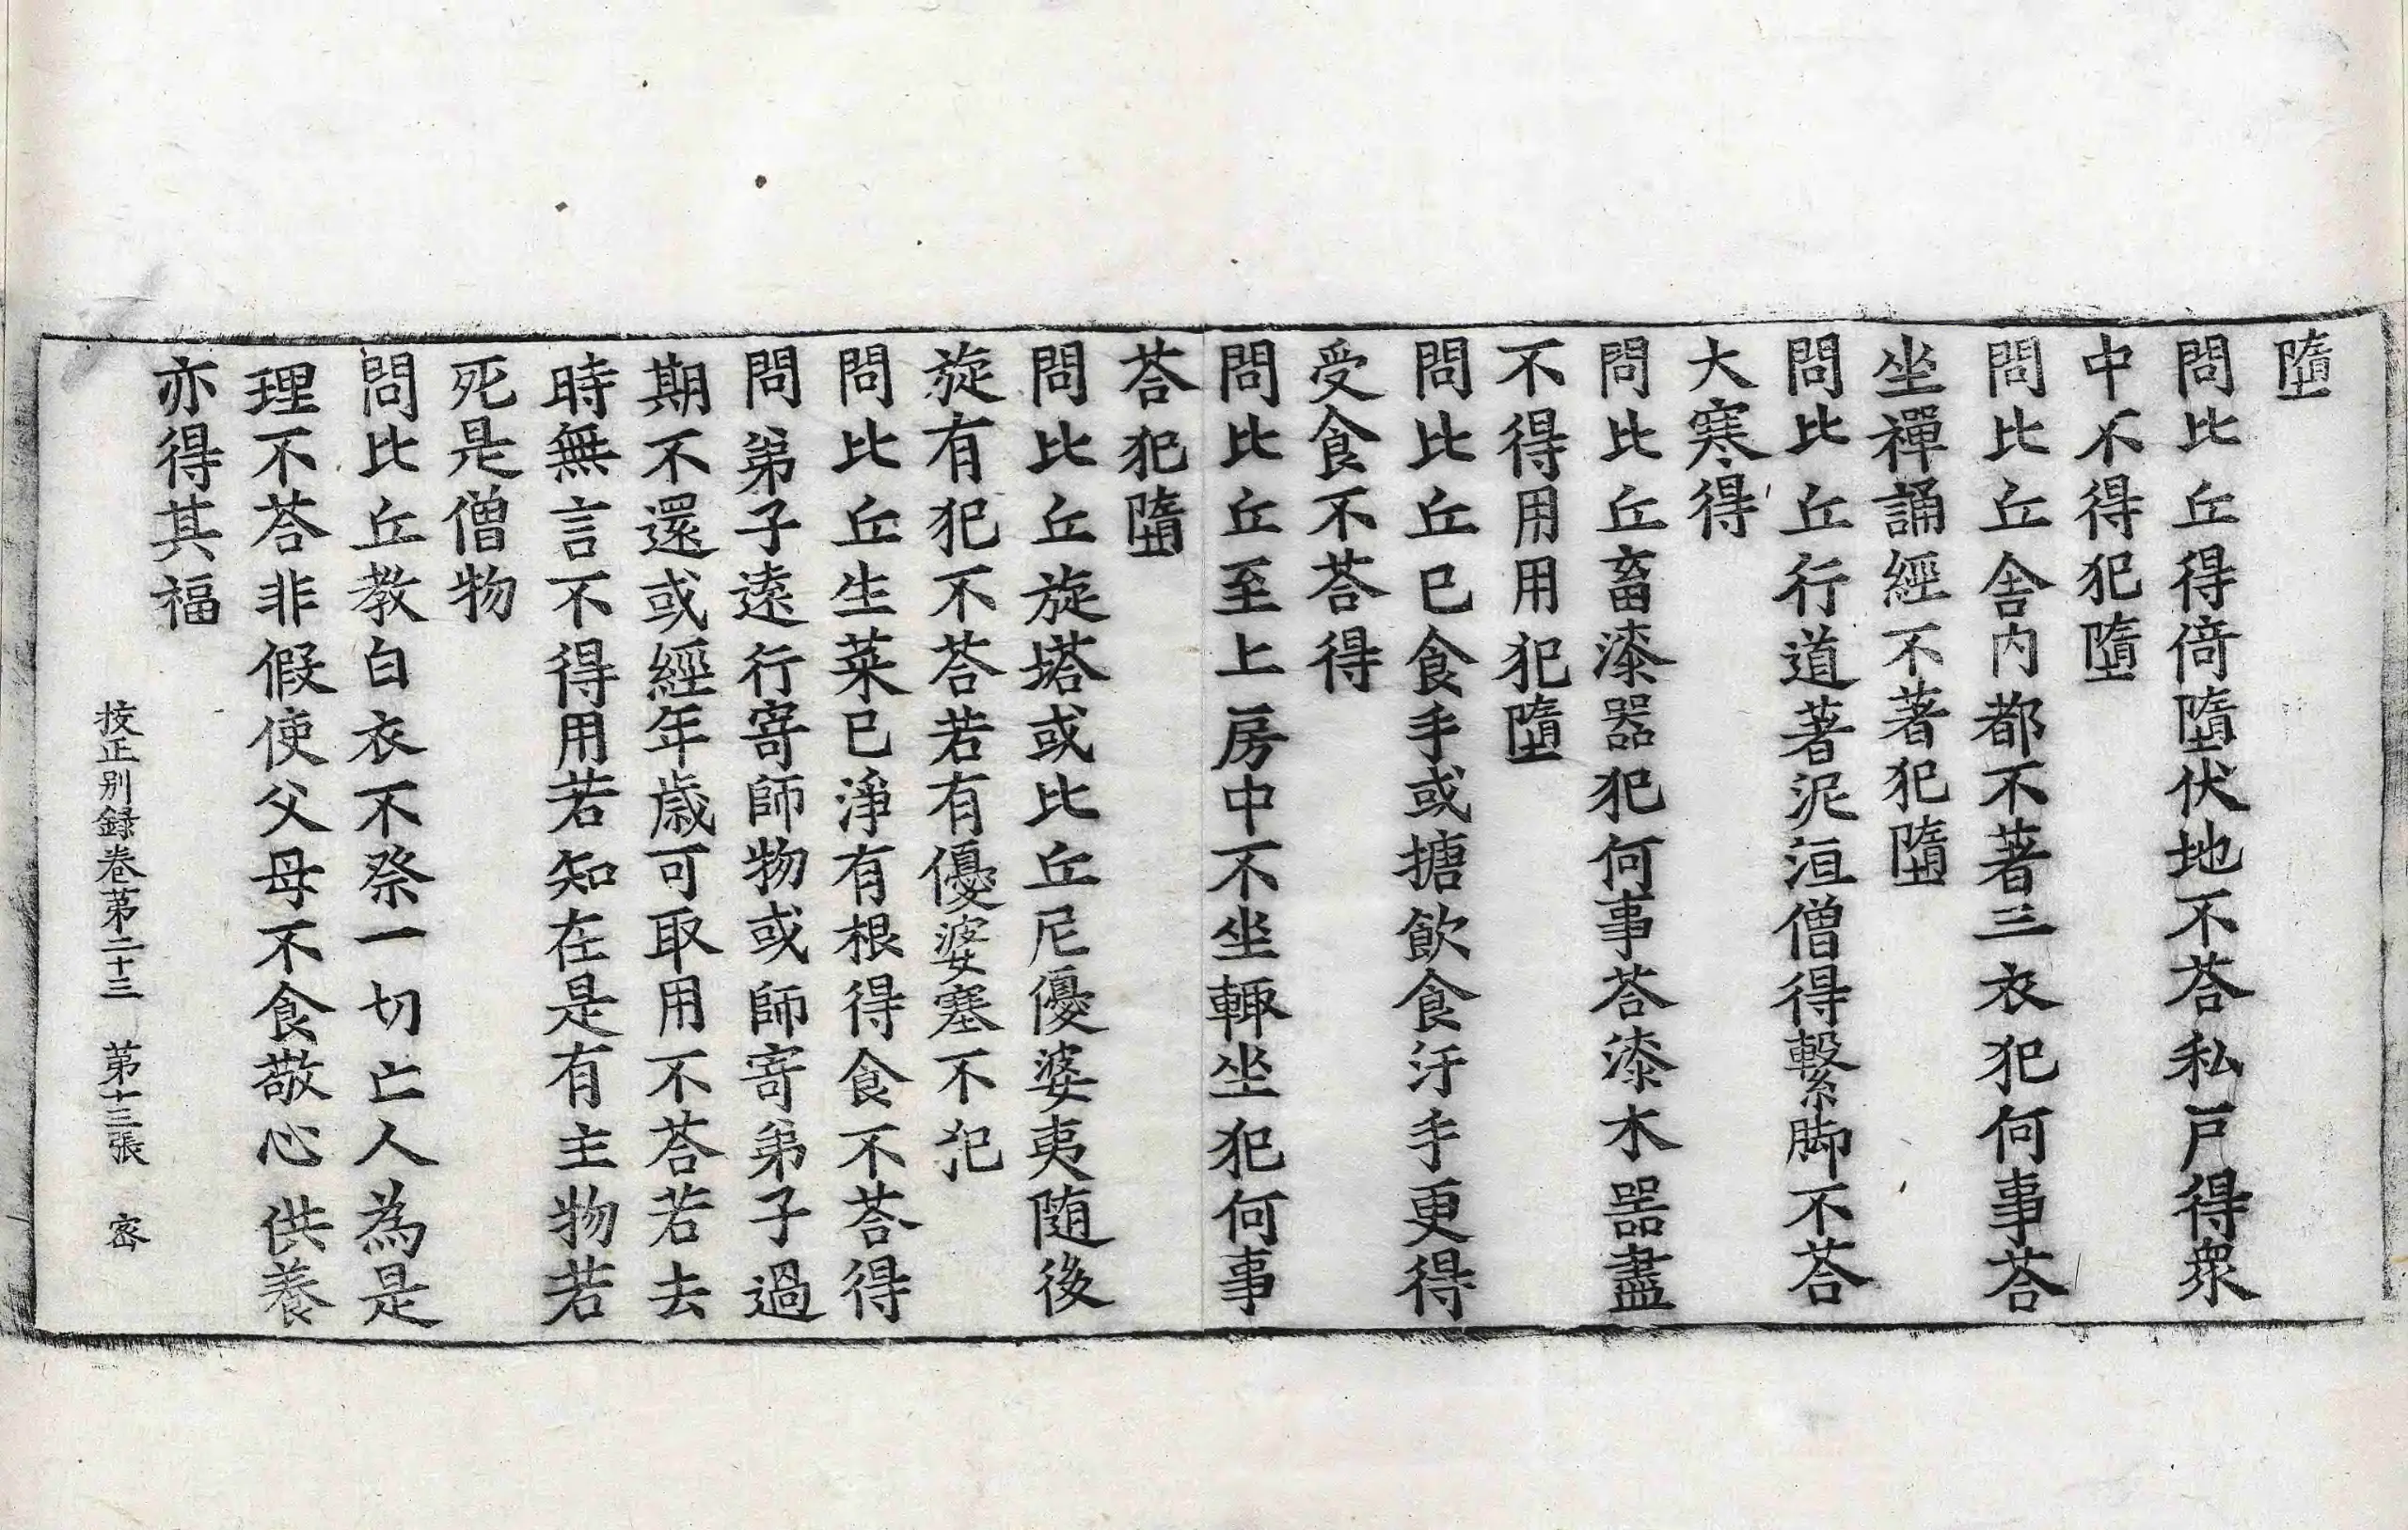 墮
問比丘得倚墮伏地不荅私戶得衆
中不得犯墮
問比丘舎内都不著三衣犯何事荅
坐禪誦經不著犯墮
問比丘行道著泥洹僧得繫脚不荅
大寒得
問比丘畜漆器犯何事荅漆木器盡
不得用用犯墮
問比丘已食手或搪飲食汙手更得
受食不荅得
問比丘至上房中不坐輙坐犯何事
荅犯墮
問比丘旋塔或比丘尼優婆夷隨後
旋有犯不荅若有優婆塞不犯
問比丘生菜已淨有根得食不荅得
問弟子遠行寄師物或師寄弟子過
期不還或經年歳可取用不荅若去
時無言不得用若知在是有主物若
死是僧物
問比丘教白衣不祭一切亡人為是
理不荅非假使父母不食敬心供養
亦得其福
挍正別録卷苐二十三　苐十三張　宻